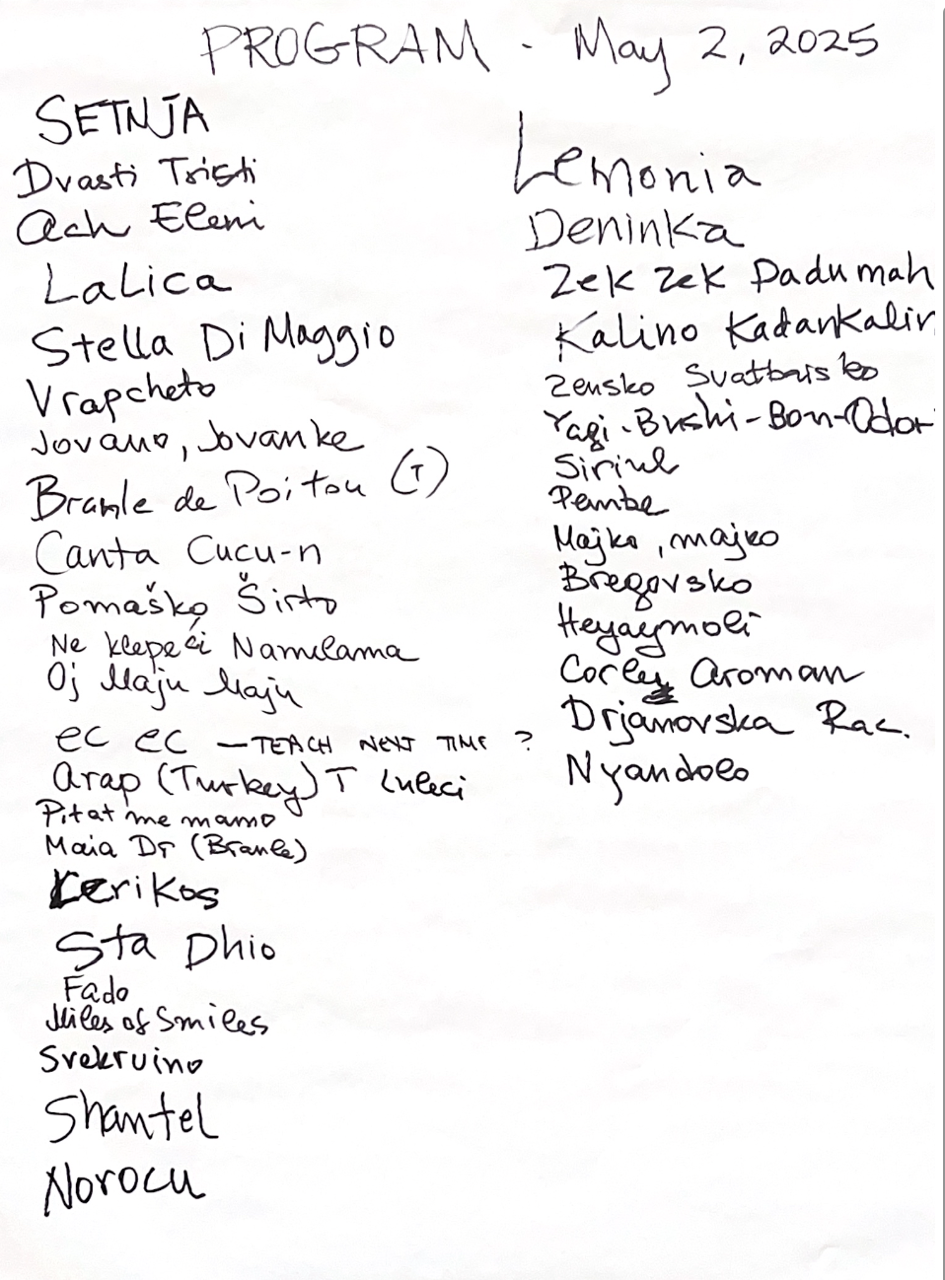 PROGRAM - May 2, 2025
SETNJA
Dvasti Tristi
Ach Eleni
LaLica
Stella Di Maggio
Vrapcheto
Jovano, Jovanke
Branle de Poitou (T)
Canta Cucu-n
Pomaško Širto
Ne klepeči Namulama
Oj Maju Maju
EC EC — TEACH NEXT TIME ?
Arap (Turkey) T Luleci
Pitat me mamo
Maia Dr (Branle)
Kerikos
Sta Dhio
Fado
Miles of Smiles
Svekruino
Shantel
Norocu
Lemonia
Deninka
Zek Zek Padumah
Kalino Kadankalin
Zensko Svatbarsko
Yagi-Bushi-Bon-Odor
Siriul
Pembe
Majko, majko
Bregovsko
Heyaymoli
Corley Aroman
Drjanovska Rac.
Nyandolo